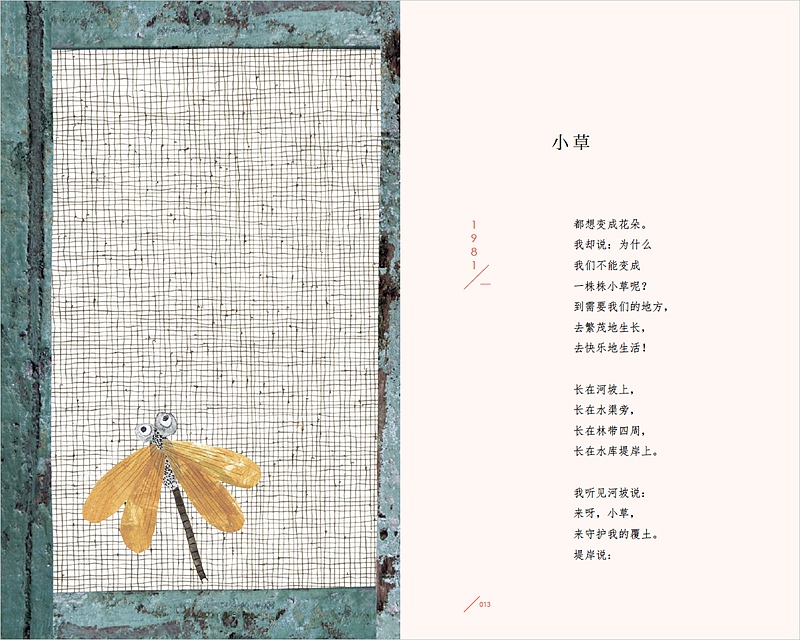 小草
1981
都想变成花朵。
我却说：为什么
我们不能变成
一株株小草呢？
到需要我们的地方，
去繁茂地生长，
去快乐地生活！
长在河坡上，
长在水渠旁，
长在林带四周，
长在水库堤岸上。
我听见河坡说：
来呀，小草，
来守护我的覆土。
堤岸说：
013